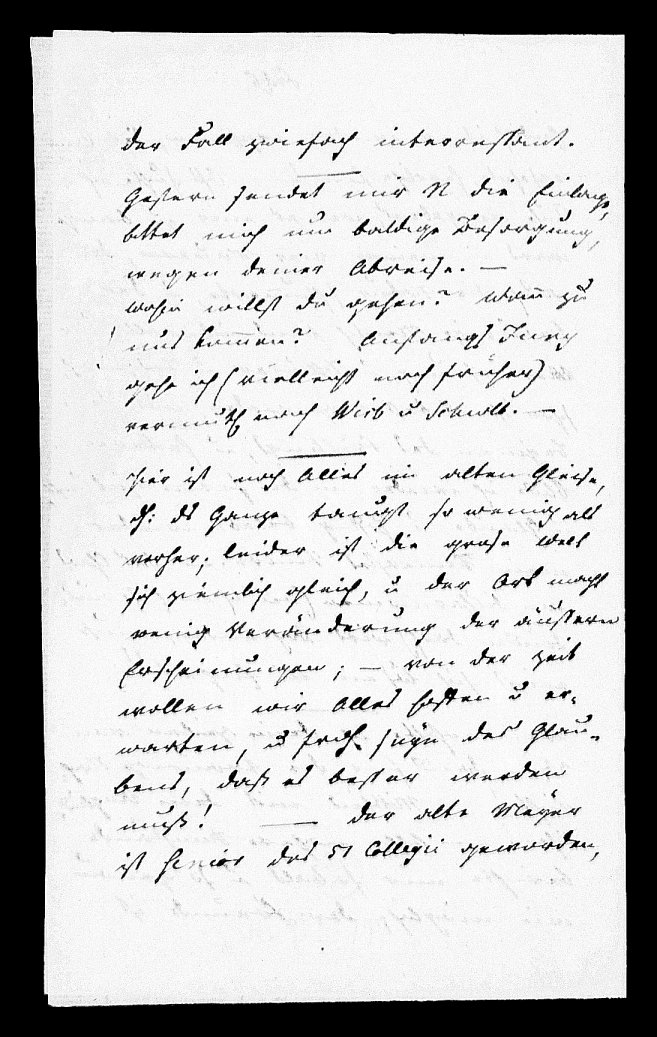 der Fall zwiefach interressant.
Gestern sendet mir N die Einlage,
bittet mich um baldige Besorgung,
wegen deiner Abreise. —
wohin willst du gehen? wañ zu
uns kom̄en? Anfangs Juny
gehe ich (vielleicht noch früher)
vermuthl nach Wisb u Schwalb. —
hier ist noch Alles im alten Gleise,
dh: ds Ganze taugt so wenig als
vorher; leider ist die große Welt
sich ziemlich gleich, u der Ort macht
wenig Veränderung der äussern
Erscheinungen; — von der Zeit
wollen wir Alles hoffen u er-
warten, u seyn des Glau-
bens, daß es besser werden
muß! — der alte Meyer
ist Senior des Collegii geworden,